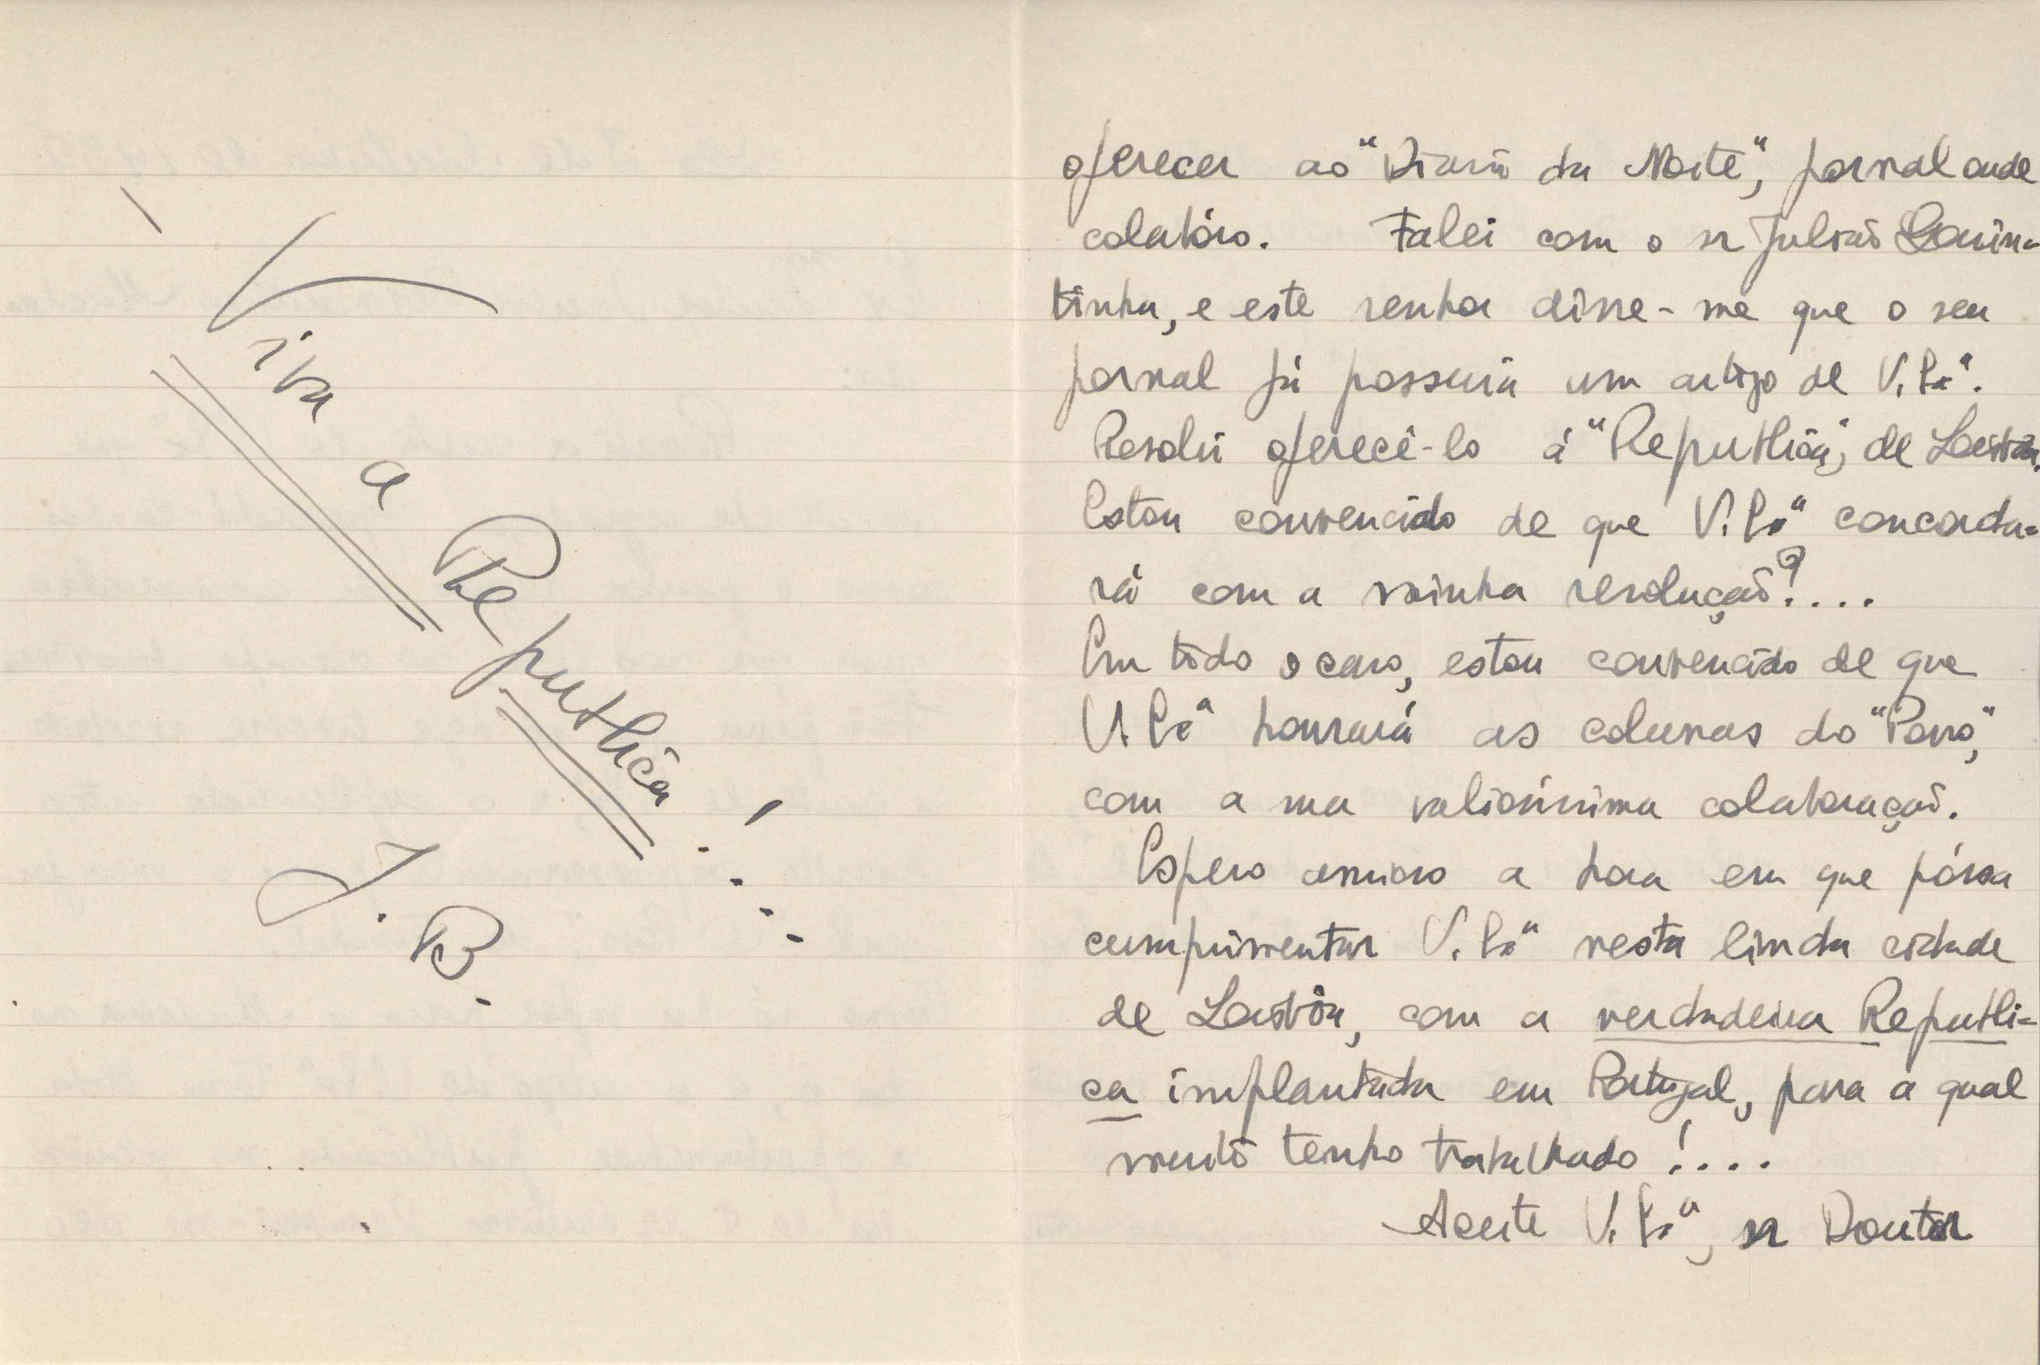 - Viva a República!...
J. B.
oferecer ao "Diario da Noite", jornal onde
colabóro. Falei com o sr Julião Quin-
tinha, e este senhor disse-me que o seu
jornal já possuia um artigo de V. Exª.
Resolvi oferecê-lo á "República", de Lisbôa.
Estou convencido de que V. Exª concorda-
rá com a minha resolução?....
Em todo o caso, estou convencido de que
V. Exª honrará as colunas do "Povo",
com a sua valiosissima colaboração.
Espero ansioso a hora em que póssa
cumprimentar V. Exª nesta linda cidade
de Lisbôa, com a verdadeira Repúbli-
ca implantada em Portugal, para a qual
muito tenho trabalhado!....
Aceite V. Exª, sr Doutor